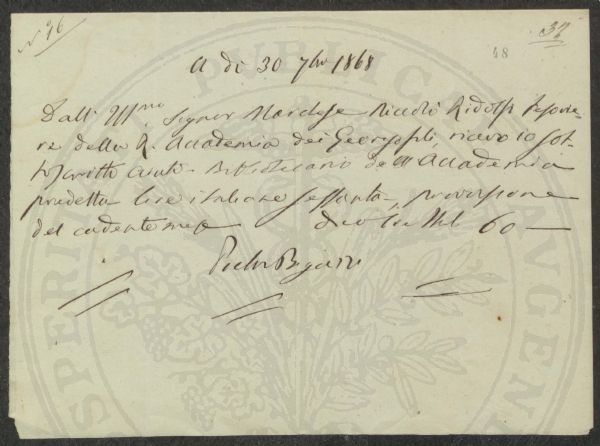 N 96
38
48
A dì 30 7bre 1868
Dall' Illmo Signor Marchese Niccolò Ridolfi Tesorie-
re della R. Accademia dei Georgofili, ricevo io sot-
toscritto Aiuto-Bibliotecario dell'Accademia
predetta lire italiane sessanta, provvisione
del cadente mese dico Lire Itl 60—
Pietro
PUBLICAE
PROSPERITATI AUGENDAE